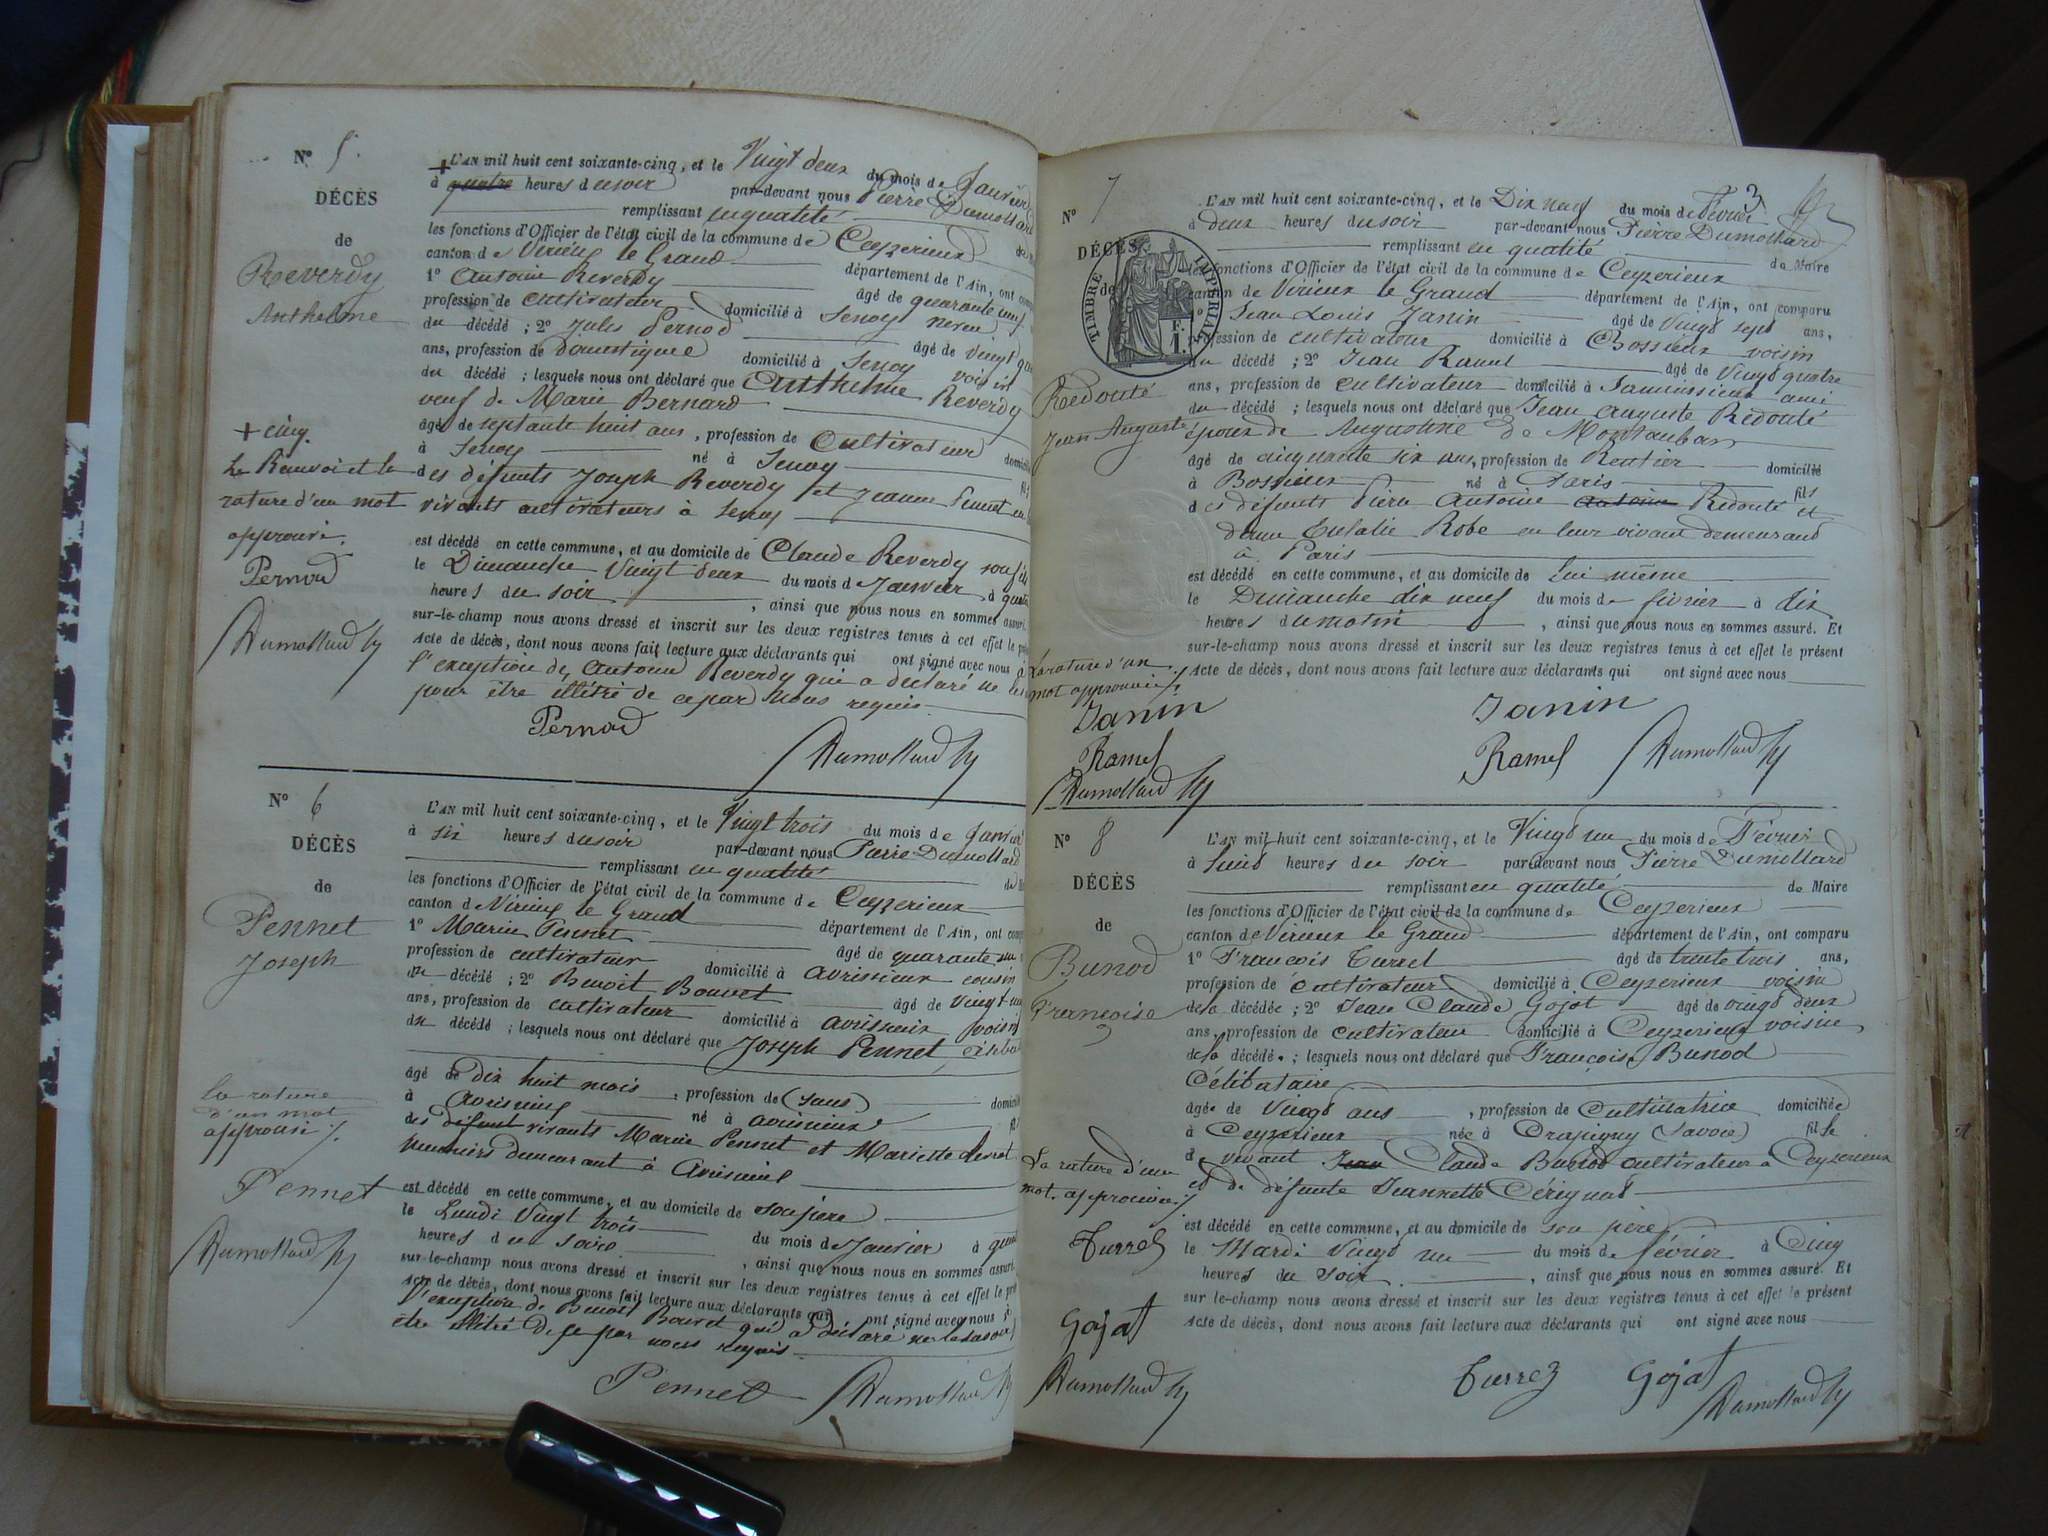 N° 5.
DÉCÈS
de
Reverdy
Anthelme
+ cinq.
Le Renvoi et la
rature d'un mot
approuvé.
Pernod
Dumollard
+ L'AN mil huit cent soixante-cinq, et le Vingt deux du mois de Janvier
à quatre heures du soir par-devant nous Pierre Dumollard
remplissant en qualité
les fonctions d'Officier de l'état civil de la commune de Ceyzerieux
canton de Virieu le Grand département de l'Ain, ont
1° Antoine Reverdy âgé de quarante
profession de cultivateur domicilié à Senoy neveu
du décédé ; 2° Jules Pernod âgé de vingt
ans, profession de domestique domicilié à Senoy voisin
du décédé ; lesquels nous ont déclaré que Anthelme Reverdy
veuf de Marie Bernard
âgé de septante huit ans, profession de Cultivateur
à Senoy né à Senoy
des défunts Joseph Reverdy et Jeanne
vivants cultivateurs à Senoy
est décédé en cette commune, et au domicile de Claude Reverdy son fils
le Dimanche Vingt deux du mois de Janvier à
heures du soir, ainsi que nous nous en sommes assuré.
sur-le-champ nous avons dressé et inscrit sur les deux registres tenus à cet effet le
acte de décès, dont nous avons fait lecture aux déclarants qui ont signé avec nous à
l'exception de Antoine Reverdy qui a déclaré ne le
pour être illitré de ce par nous requis
Pernod Dumollard
N° 6
DÉCÈS
de
Pennet
Joseph
La rature
d'un mot
approuvé
Pennet
Dumollard
L'AN mil huit cent soixante-cinq, et le Vingt trois du mois de Janvier
à six heures du soir par-devant nous Pierre Dumollard
remplissant en qualité
les fonctions d'Officier de l'état civil de la commune de Ceyzerieux
canton de Virieu le Grand département de l'Ain, ont
1° Marin Pennet âgé de quarante
profession de cultivateur domicilié à Avrissieux cousin
du décédé ; 2° Benoit Bouvet âgé de vingt
ans, profession de cultivateur domicilié à Avrissieux voisin
du décédé ; lesquels nous ont déclaré que Joseph Pennet,
âgé de dix huit mois, profession de (sans)
à né à
des défunt vivants Marin Pennet et Mariette
meuniers demeurant à
est décédé en cette commune, et au domicile de son père
le Lundi Vingt trois du mois de Janvier à
heures du soir, ainsi que nous nous en sommes assuré.
sur-le-champ nous avons dressé et inscrit sur les deux registres tenus à cet effet le
acte de décès, dont nous avons fait lecture aux déclarants qui ont signé avec nous
l'exception de Benoit Bouvet qui a déclaré ne le savoir
être illitré de ce par nous requis
Pennet Dumollard
3
N° 7
DÉCÈS
de
TIMBRE IMPERIAL
1 F.
Redouté
Jean Auguste
La rature d'un
mot approuvée
Janin
Ramel
Dumollard
L'AN mil huit cent soixante-cinq, et le Dix neuf du mois de Février
à deux heures du soir par-devant nous Pierre Dumollard
remplissant en qualité de Maire
les fonctions d'Officier de l'état civil de la commune de Ceyzerieux
canton de Virieux le Grand département de l'Ain, ont comparu
1° Jean Louis Janin âgé de Vingt sept ans,
profession de cultivateur domicilié à Bossieux voisin
du décédé ; 2° Jean Ramel âgé de Vingt quatre
ans, profession de cultivateur domicilié à ami
du décédé ; lesquels nous ont déclaré que Jean Auguste Redouté
époux de Augustine de Montauban
âgé de cinquante six ans, profession de Rentier domicilié
à Bossieux né à Paris fils
des défunts Pierre Antoine Antoine Redouté et
dame Eulalie Robe en leur vivant demeurand
à Paris
est décédé en cette commune, et au domicile de Lui même
le Dimanche dix neuf du mois de février à dix
heures du matin, ainsi que nous nous en sommes assuré. Et
sur-le-champ nous avons dressé et inscrit sur les deux registres tenus à cet effet le présent
acte de décès, dont nous avons fait lecture aux déclarants qui ont signé avec nous
Janin
Ramel Dumollard
N° 8
DÉCÈS
de
Bunod
Francoise
La rature d'un
mot. approuvée
Turrel
Gojat
Dumollard
L'AN mil huit cent soixante-cinq, et le Vingt un du mois de Février
à huit heures du soir par-devant nous Pierre Dumollard
remplissant en qualité de Maire
les fonctions d'Officier de l'état civil de la commune de Ceyzerieux
canton de Virieux le Grand département de l'Ain, ont comparu
1° François Turrel âgé de trente trois ans,
profession de cultivateur domicilié à Ceyzerieux voisin
de la décédée ; 2° Jean Claude Gojat âgé de vingt deux
ans, profession de cultivateur domicilié à Ceyzerieux voisin
de la décédée ; lesquels nous ont déclaré que Françoise Bunod
Célibataire
âgée de Vingt ans, profession de Cultivatrice domiciliée
à Ceyzerieux née à (Savoie) fille
de vivant Jean Claude Bunod cultivateur à Ceyzerieux
et de défunte Jeannette
est décédé en cette commune, et au domicile de son père
le Mardi Vingt un du mois de février à Cinq
heures du soir, ainsi que nous nous en sommes assuré. Et
sur-le-champ nous avons dressé et inscrit sur les deux registres tenus à cet effet le présent
acte de décès, dont nous avons fait lecture aux déclarants qui ont signé avec nous
Turrel Gojat Dumollard